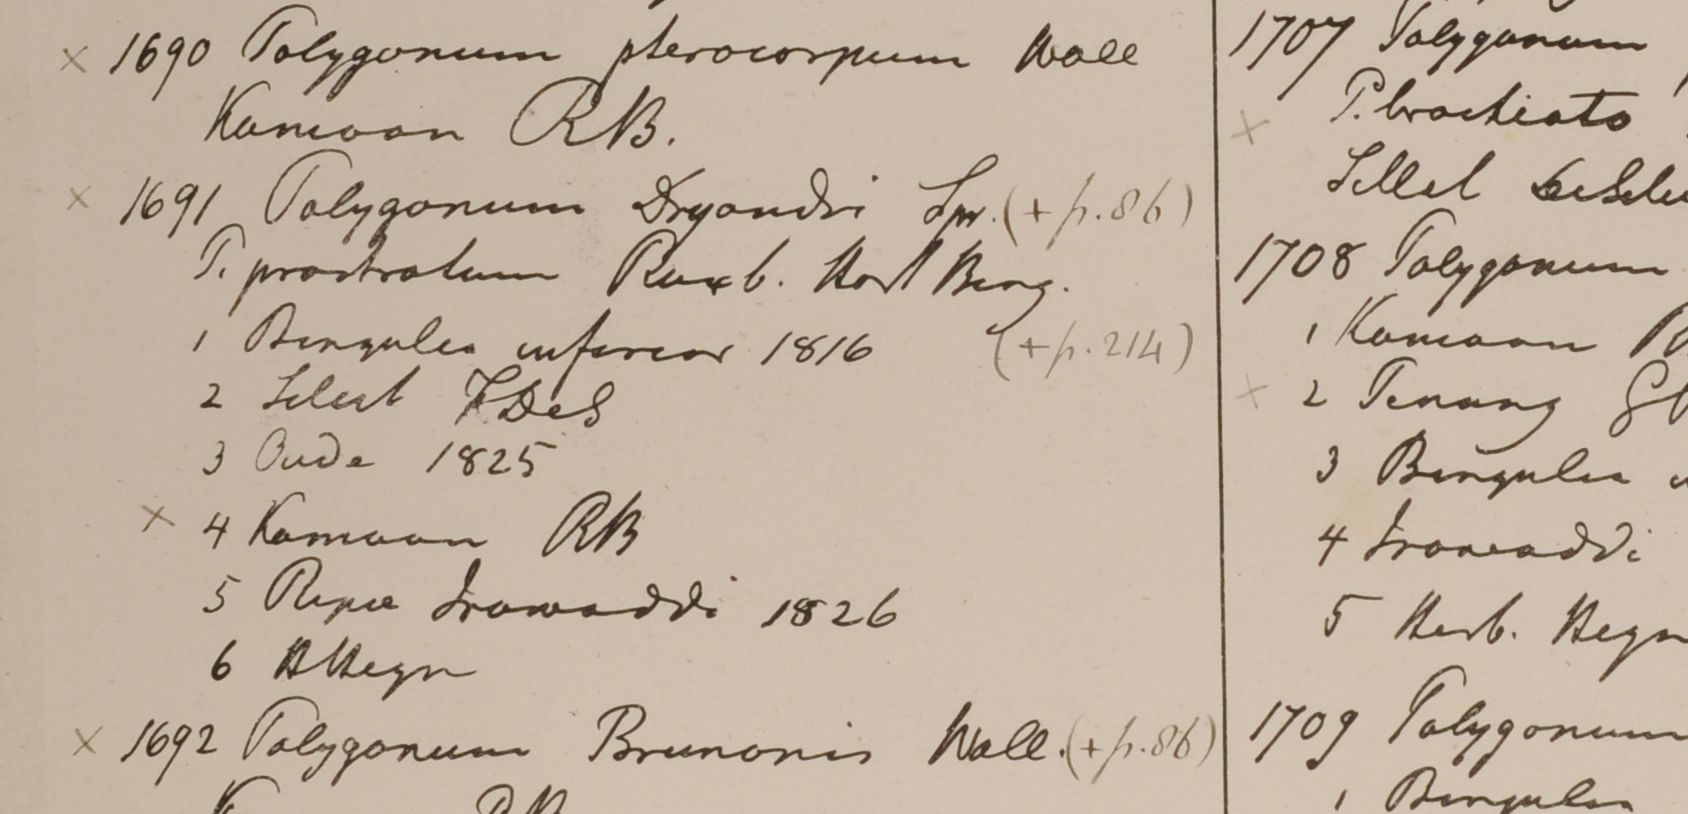 × 1690 Polygonum pterocarpum Wall
Kamaon RB.
× 1691 Polygonum Dryandri Spr. (+ p. 86)
P. prostratum Roxb. Hort Beng.
1 Bengalia inferior 1816 (+ p. 214)
2 Sillet FDeS
3 Oude 1825
× 4 Kamaon RB
5 Ripae Irawaddi 1826
6 HHeyn
× 1692 Polygonum Brunonis Wall. (+ p. 86)
1707 Polygonum
P. brachiata
×
Sillet
1708 Polygonum
1 Kamaon
× 2 Penang
3 Bengalia
4 Irawaddi
5 Herb. Heyn
1709 Polygonum
1 Bengalia